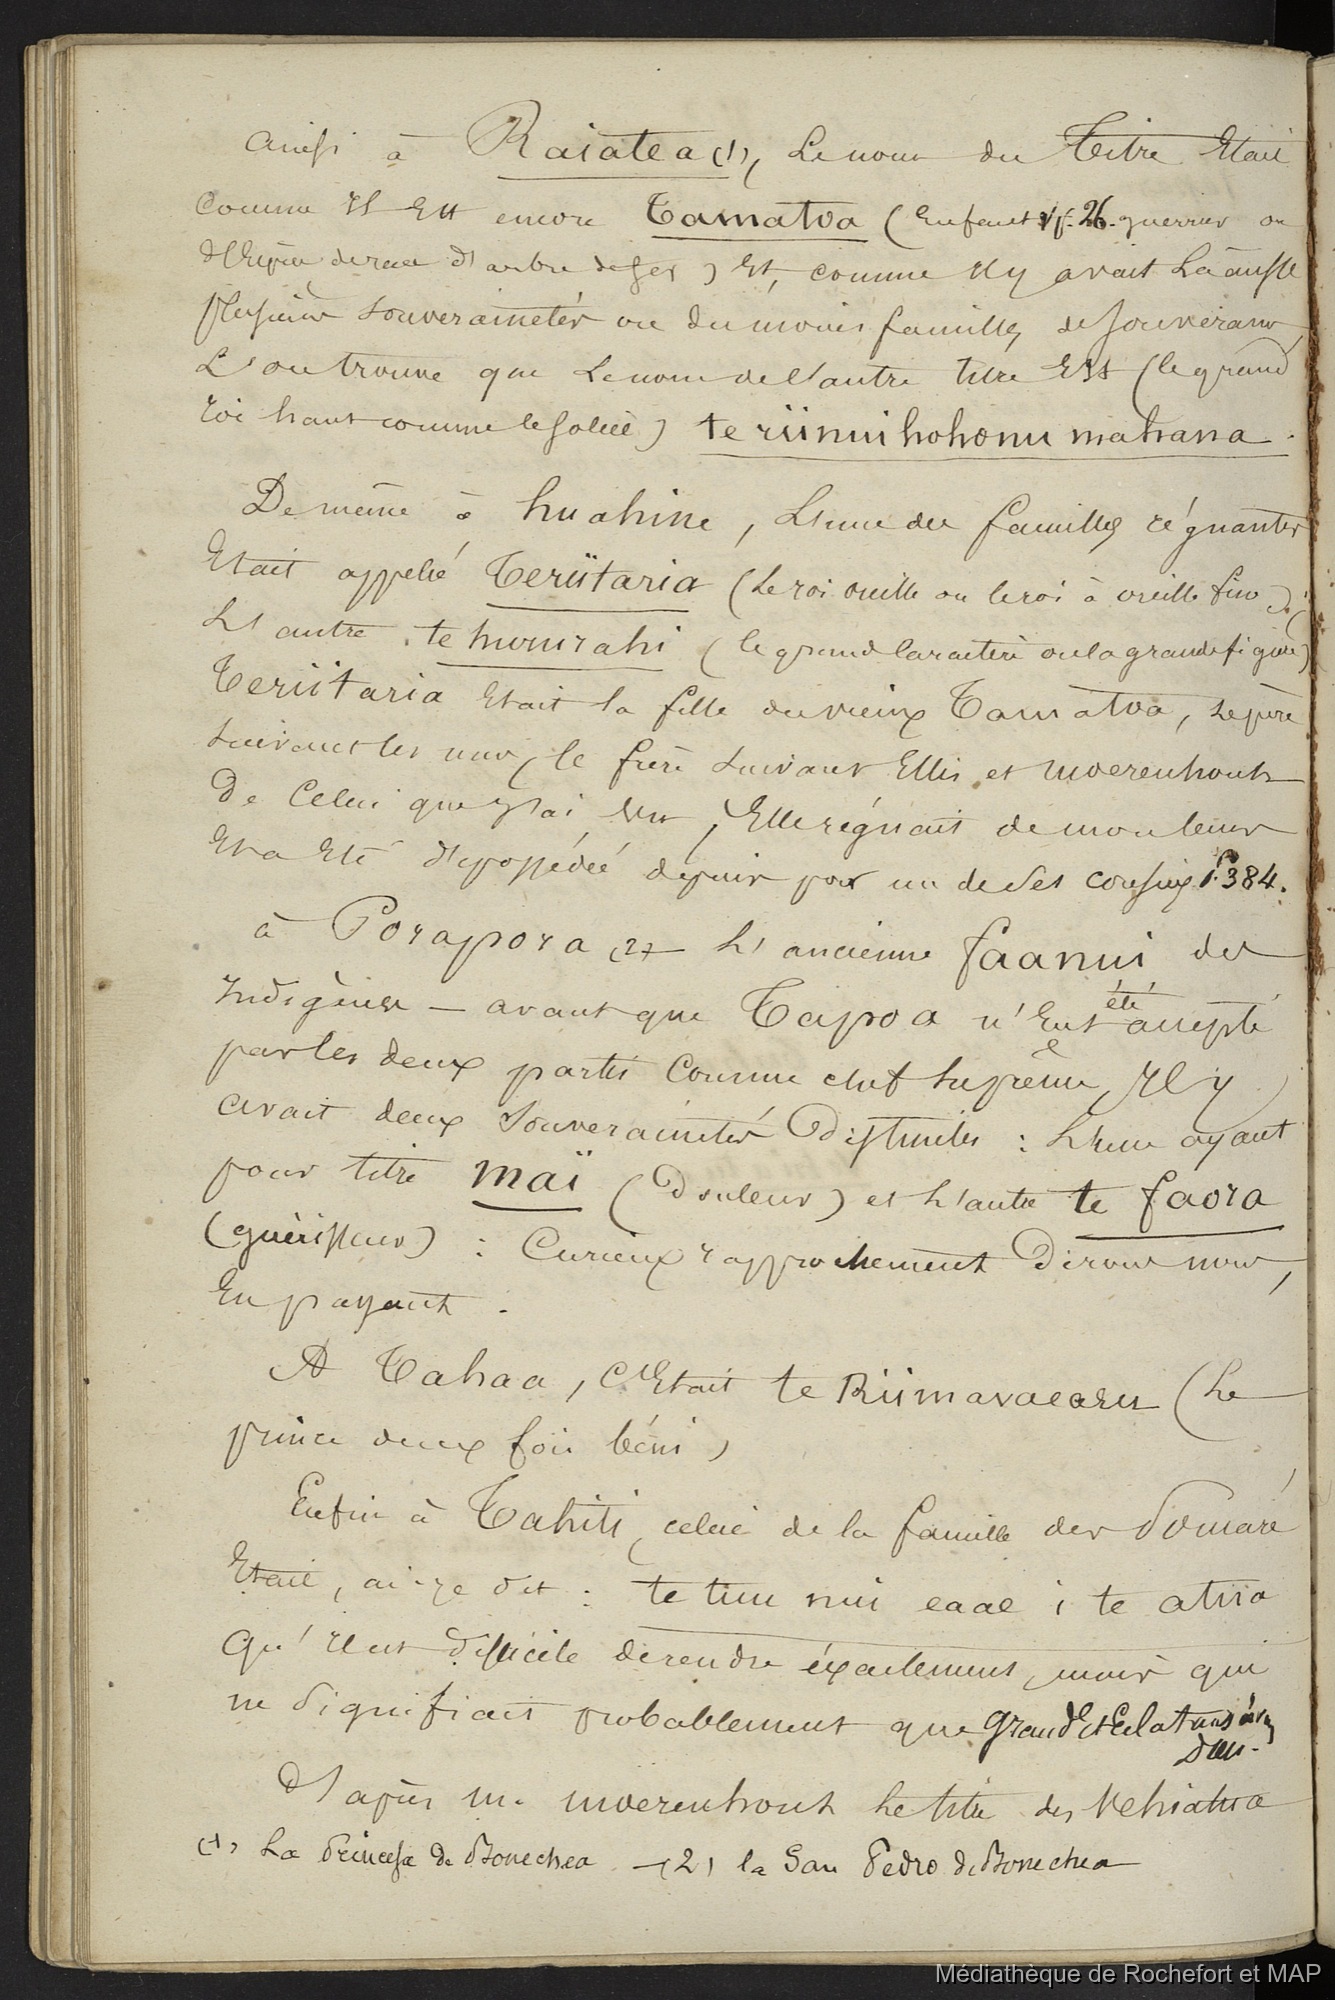 ainsi à Raiatea (1), le nom du titre Etait
comme Il Est encore Tamatoa (Enfant Vf. 26. guerrier ou
d'arbre de fer) Et, comme Il y avait là aussi
plusieurs souverainetés ou du moins familles de souverains,
L'on trouve que le nom de l'autre titre Est (le grand
roi haut comme le soleil) te riinui hohonu mahana.
De même à huahine, L'une des familles régnantes
Etait appelée Teriitaria (le roi oreille ou le roi à oreille fine);
L'autre te houirahi (le grand Caractère ou la grande figure)
Teriitaria Etait la fille du vieux Tamatoa, le père
suivant les uns, le frère suivant Ellis et moerenhout
De Celui que J'ai vu, Elle régnait de mon temps
Et a Eté dépossédée depuis par un de ses cousins f. 384.
à Porapora (2) L'ancienne faanui des
Indigènes — avant que Tapoa n'Eut été accepté
par les deux partis Comme chef suprême, Il y
avait deux Souverainetés Distinctes : L'une ayant
pour titre maï (Douleur) et L'autre te faora
(guérisseur) : Curieux rapprochement Dirons nous,
En passant.
A Tahaa, C'Etait te Riimaraearu (Le
prince deux fois béni)
Enfin à Tahiti, celui de la famille des Pomaré
Etait, ai-je dit : te tuu nui eaae i te atua
Qu'Il est difficile de rendre éxactement, mais qui
ne signifiait probablement que Grand Et Eclatant
Dieu.
D'après M. moerenhout Le titre des Vehiatua
(1) La Princesa de Bonechea — (2) la San Pedro de Bonechea
Médiathèque de Rochefort et MAP